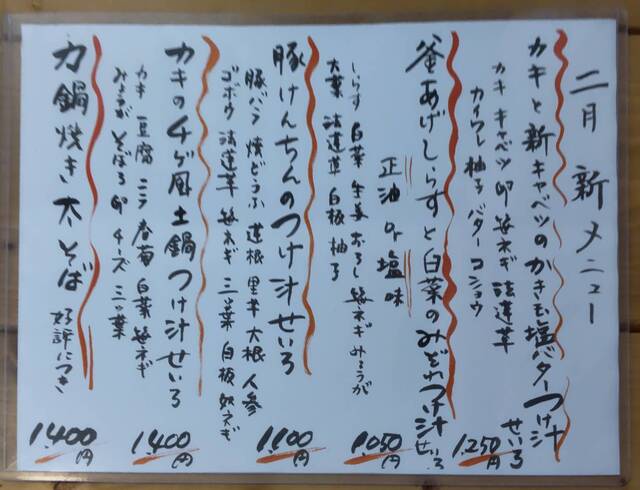 二月 新メニュー
カキと新キャベツのかき玉塩バターつけ汁せいろ
カキ キャベツ 卵 笹ネギ 法蓮草
カイワレ 柚子 バター コショウ
1,250円
釜あげしらすと白菜のみぞれつけ汁せいろ
正油 or 塩味
しらす 白菜 生姜 おろし 笹ネギ みょうが
大葉 法蓮草 白板 柚子
1,050円
豚けんちんのつけ汁せいろ
豚バラ 焼どうふ 蓮根 里芋 大根 人参
ゴボウ 法蓮草 笹ネギ 三ツ葉 白板 奴ネギ
1,100円
カキのチゲ風土鍋つけ汁せいろ
カキ 豆腐 ニラ 春菊 白菜 笹ネギ
みょうが そぼろ 卵 チーズ 三ツ葉
1,400円
力鍋焼き太そば 好評につき
1,400円